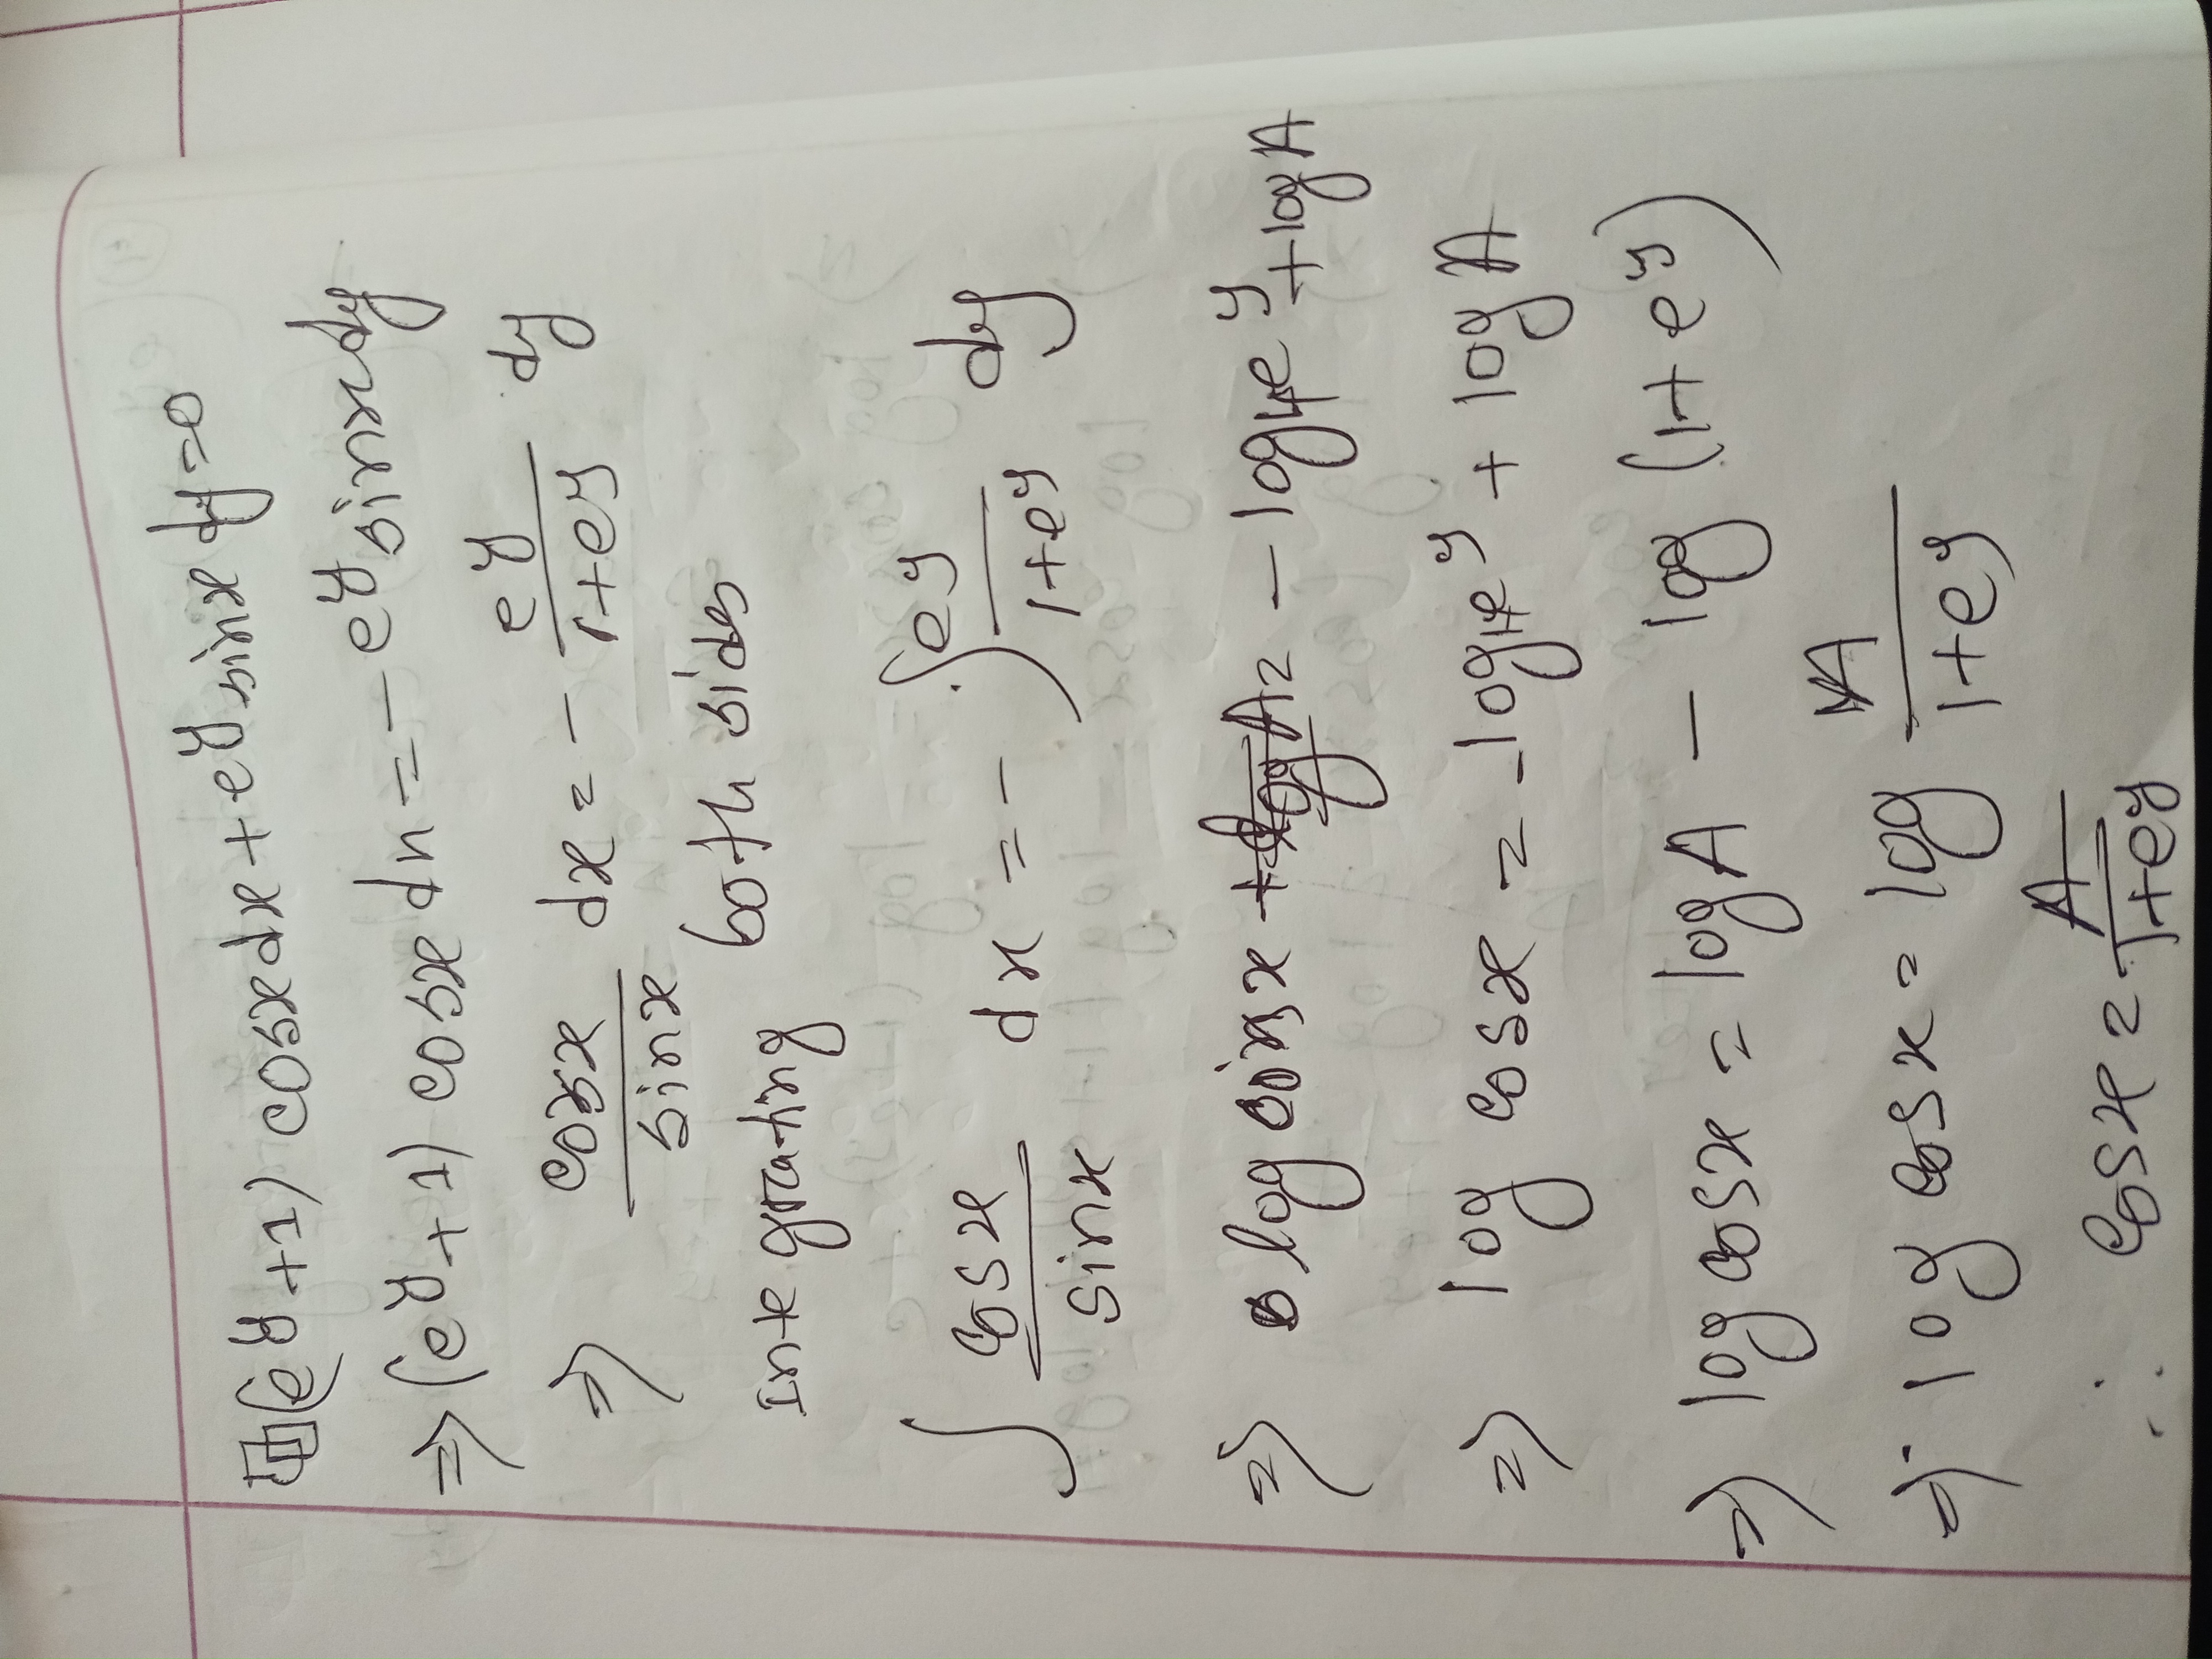 (e^y+1) cosx dx + e^y sinx dy = 0
⇒ (e^y+1) cosx dn = - e^y sinx dy
⇒ cosx/sinx dx = - e^y/1+e^y dy
Integrating both sides
∫ cosx/sinx dx = - ∫ e^y/1+e^y dy
⇒ log sinx = - log 1+e^y + log A
⇒ log cosx = - log 1+e^y + log A
⇒ log cosx = log A - log (1+e^y)
⇒ log cosx = log A/1+e^y
∴ cosx = A/1+e^y